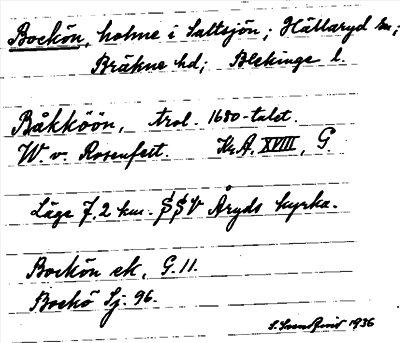 Bockön, holme i Saltsjön; Hällaryd sn;
Bräkne hd; Blekinge l.
Båkköön, trol. 1680-talet.
W. v. Rosenfelt. Kr.A. XVIII, G.
Läge 7,2 km. SSV Åryds kyrka.
Bockön ek, G. 11.
Bockö Sj. 96.
1936